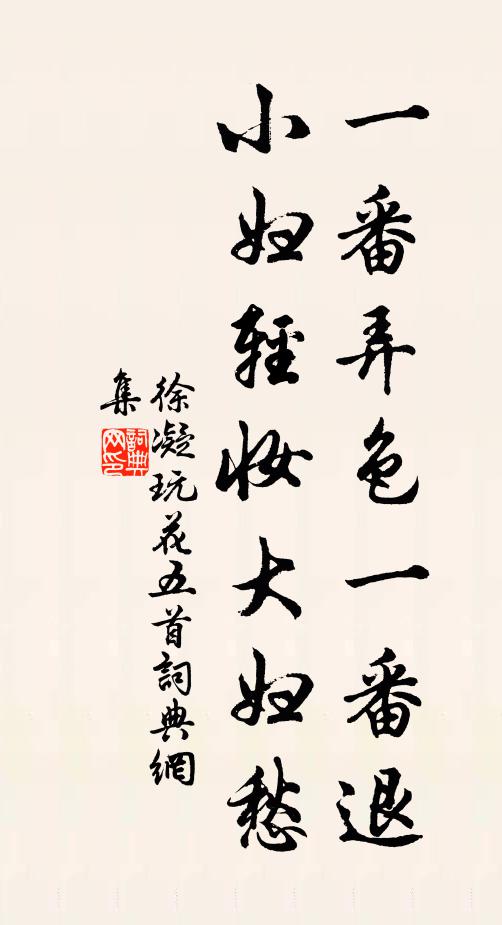 一番弄色一番退
小妇輕妝大妇愁
徐凝玩花五首詞典網
集
詞典
网印